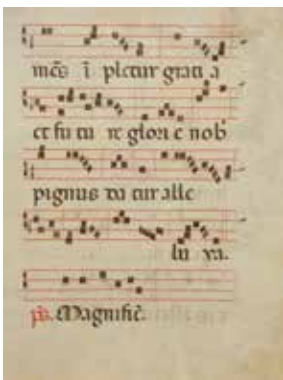 mēs ī pletur grati a
et fu tu re glori e nob̄
pignus da tur alle
lu ya.
p̄s. Magnific̄.